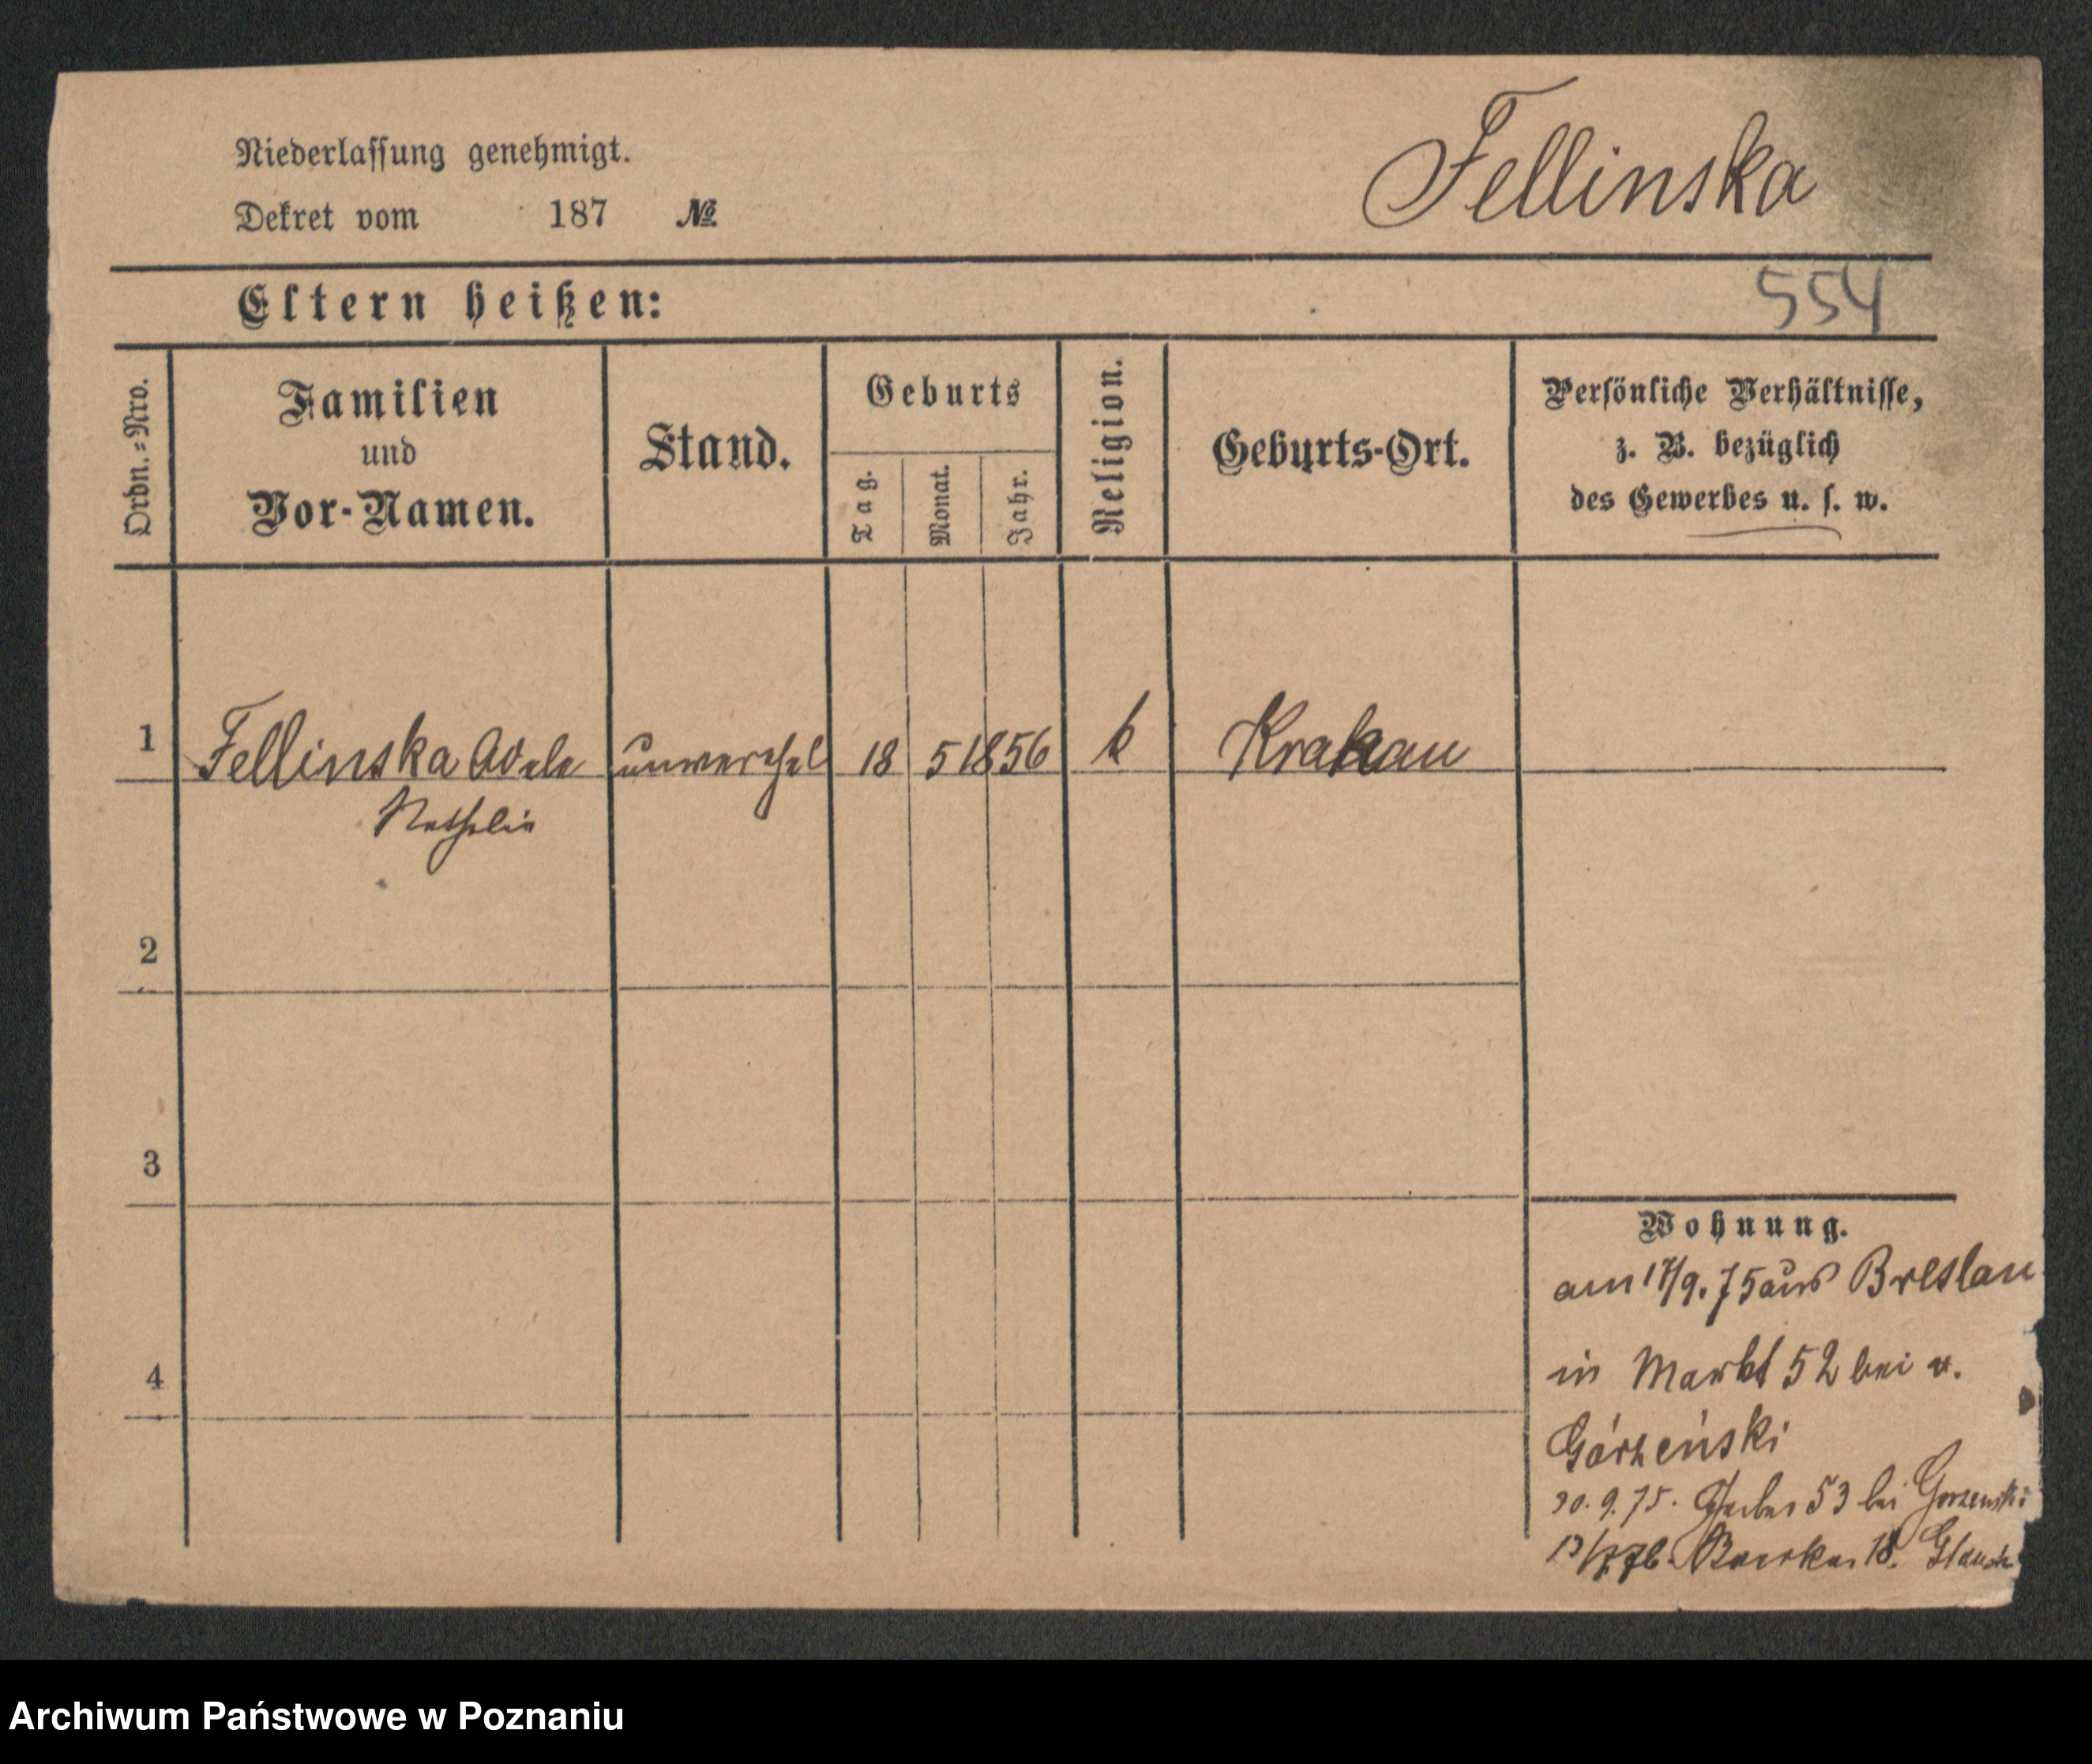 Niederlassung genehmigt.
Dekret vom 187 №
Fellinska
Eltern heißen:
554
Ordn.=Nro.
Familien
und
Vor-Namen.
Stand.
Geburts
Tag.
Monat.
Jahr.
Religion.
Geburts-Ort.
Persönliche Verhältnisse,
z. B. bezüglich
des Gewerbes u. s. w.
1 Fellinska Adele unverehel 18 5 1856 k Krakau
2
3
4
Wohnung.
am 17/9. 75 aus Breslau
in Markt 52 bei v.
Górzeński
30. 9. 75. 53 bei Gorzenski
18.
Archiwum Państwowe w Poznaniu